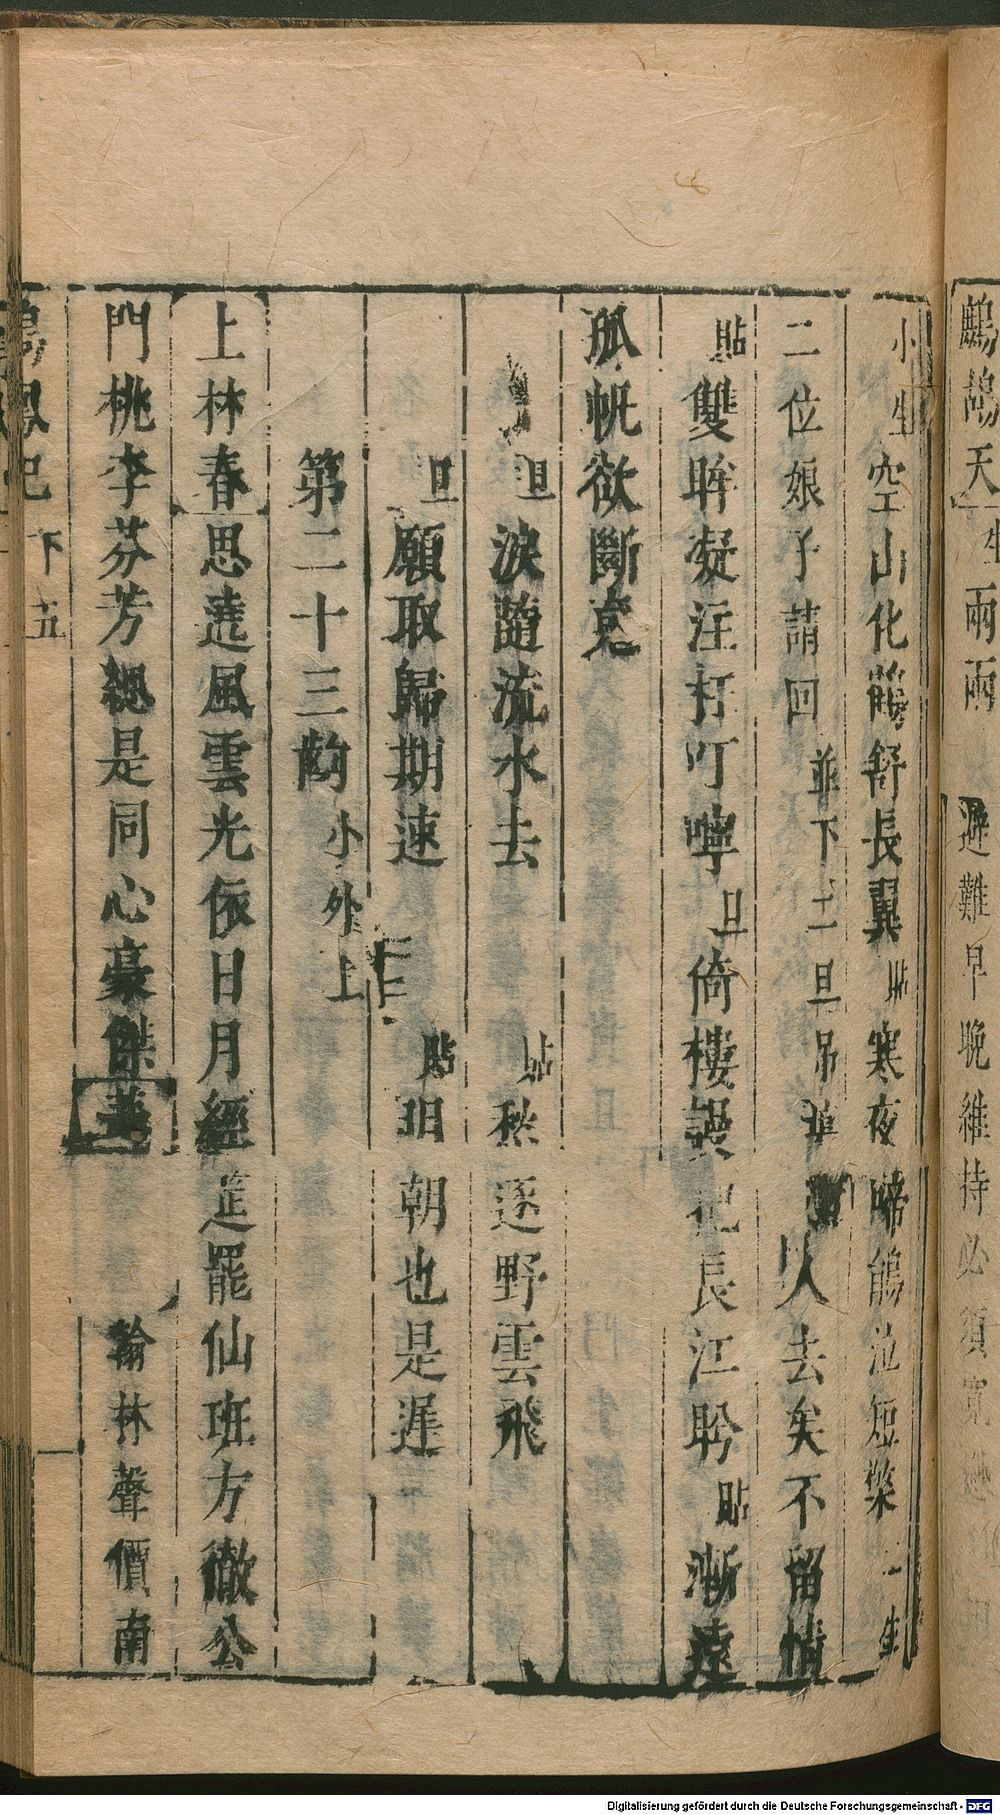 鷓鴣天 生 兩兩 避難早晚維持必須
小生 空山化 舒長翼 貼 寒夜啼 泣短檠 生
二位娘子請回 並下二旦吊 人去矣不留情
貼 雙眸凝注打叮嚀 旦 倚樓謾記長江 貼 漸遠
孤帆欲斷
旦 淚隨流水去 貼 愁逐野雲飛
旦 願取歸期速 貼 明朝也是遲
第二十三齣 小外上
上林春 思遶風雲光依日月經筵罷仙班方徹公
門桃李芬芳 是同心豪傑 翰林聲價南
鳳記 下 五
Digitalisierung gefördert durch die Deutsche Forschungsgemeinschaft - DFG